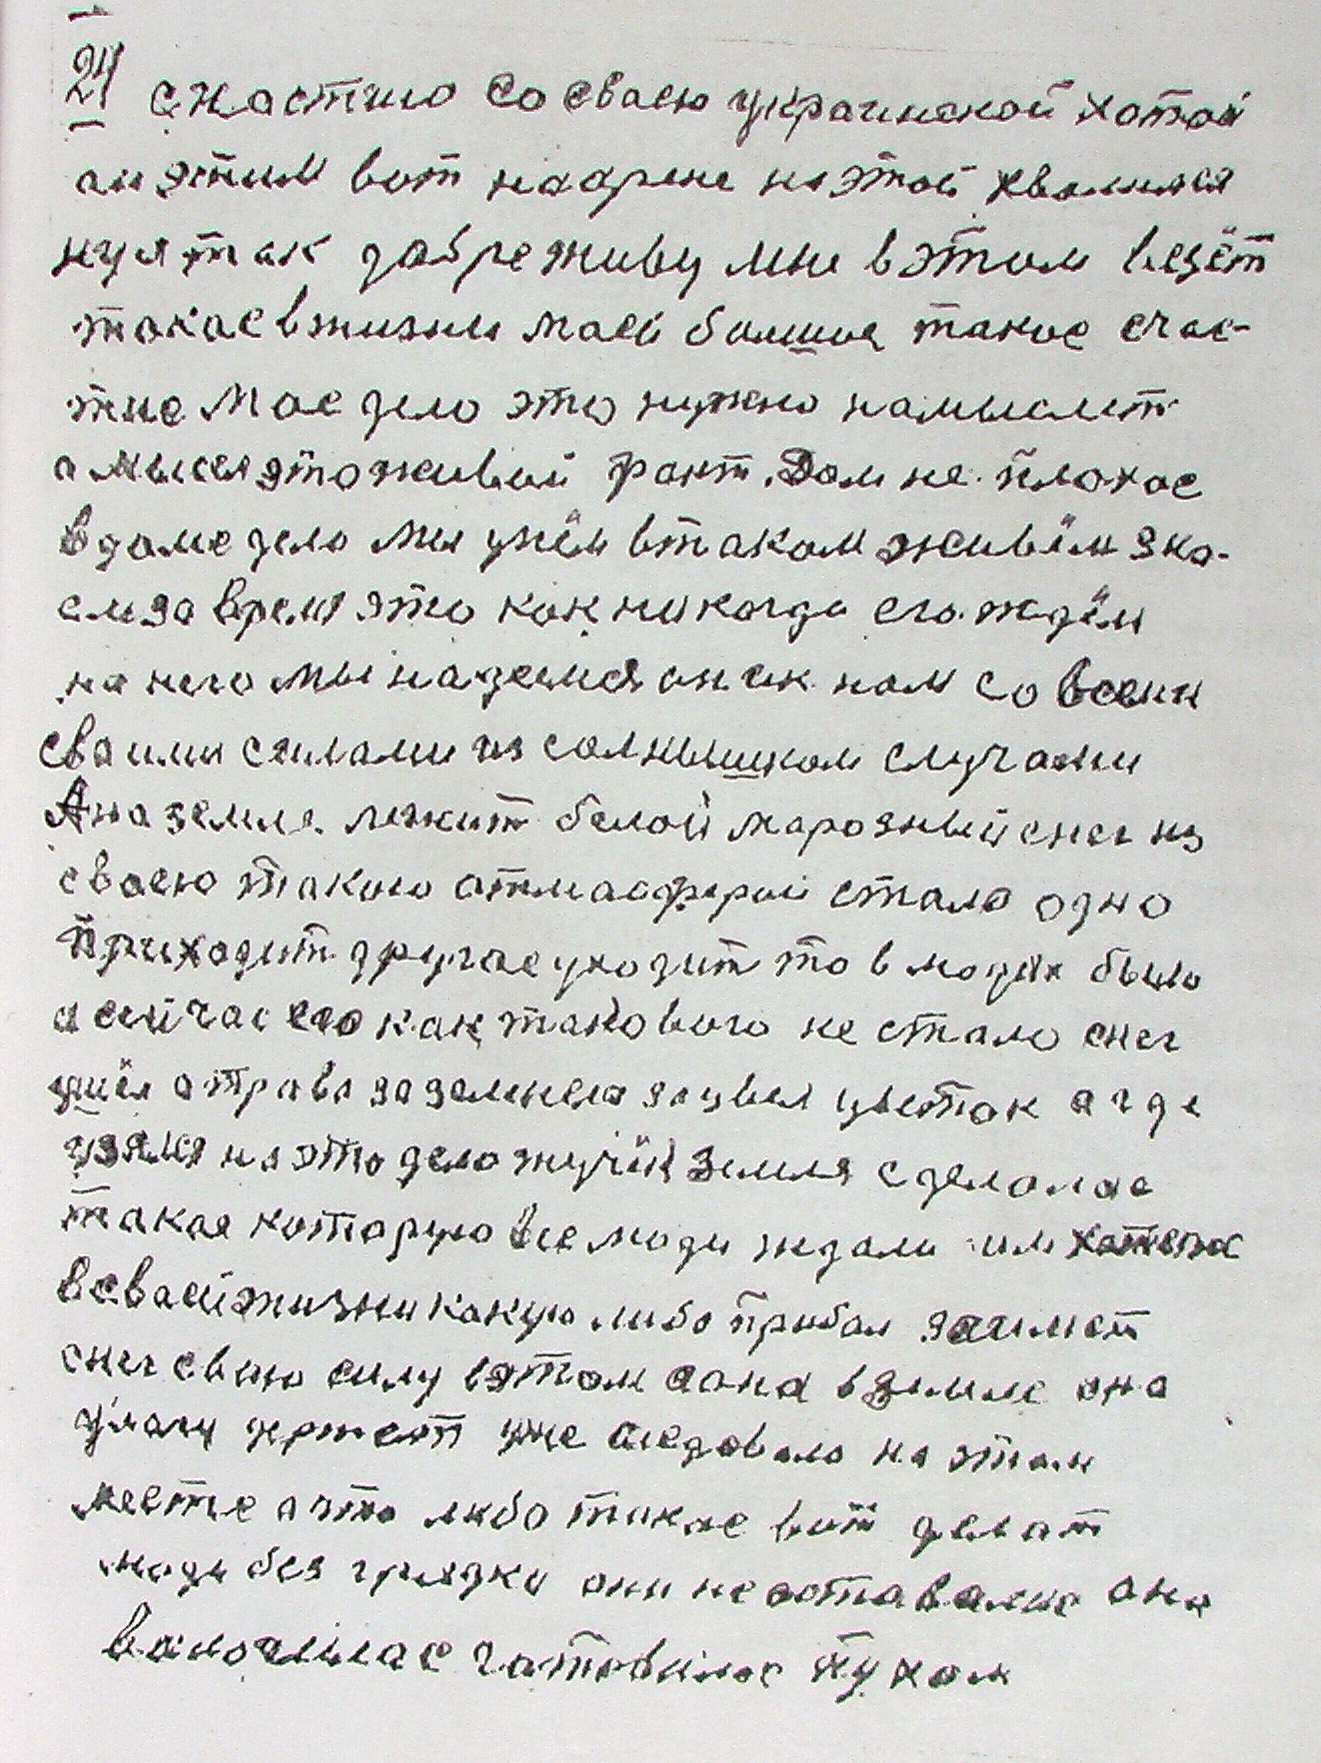 24 счастию со сваею украинской хотой
ан этим вот на арене на этой хвалимся
ну и так добре живу мне в этом везёт
такае в жизни маей болшое такое счас-
тие Мае дело это нужно намыслит
а мысля это живой факт. Дом не плохое
в доме дело мы учём в таком живём зна-
ем за время это как никогда его ждём
на него мы надеемся он и к нам со всеми
сваими силами из солнышком случами
А на земле лежит белой марозный снег из
сваею такою атмасферой стало одно
приходит другое уходит то в людях было
а сейчас его как такового не стало снег
ушёл а трава зазеленела зацвел цветок а где
узялся на это дело жучёк земля сделалас
такая которую все люди ждали им хателос
в сваей жизни какую либо прибыл занимет
снег сваю силу в этом а она в земле она
улагу держит уже следовало на этом
месте а что либо такое вот делат
люди без грядки они не оставалис она
валочилас гатовилас пухом